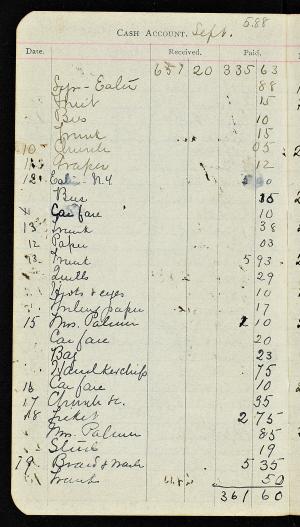 5.88
CASH ACCOUNT. Sept.
Date. Received. Paid.
657 20 335 63
88
Fruit 15
Bus 10
Trunk 15
10 Church 05
Grapes 12
12
Bus 15
Car fare 10
13 Trunk 38
12 Paper 03
13 Trunk 5 93
Quills 29
Hooks & eyes 10
Writing paper 17
15 Mrs. Palmer 2 10
Car fare 20
Bag 23
Handkerchiefs 75
16 Car fare 10
17 Church &c. 35
18 Ticket 2 75
Mrs. Palmer 85
19
19 Braid & 5 35
Trunk 50
361 60